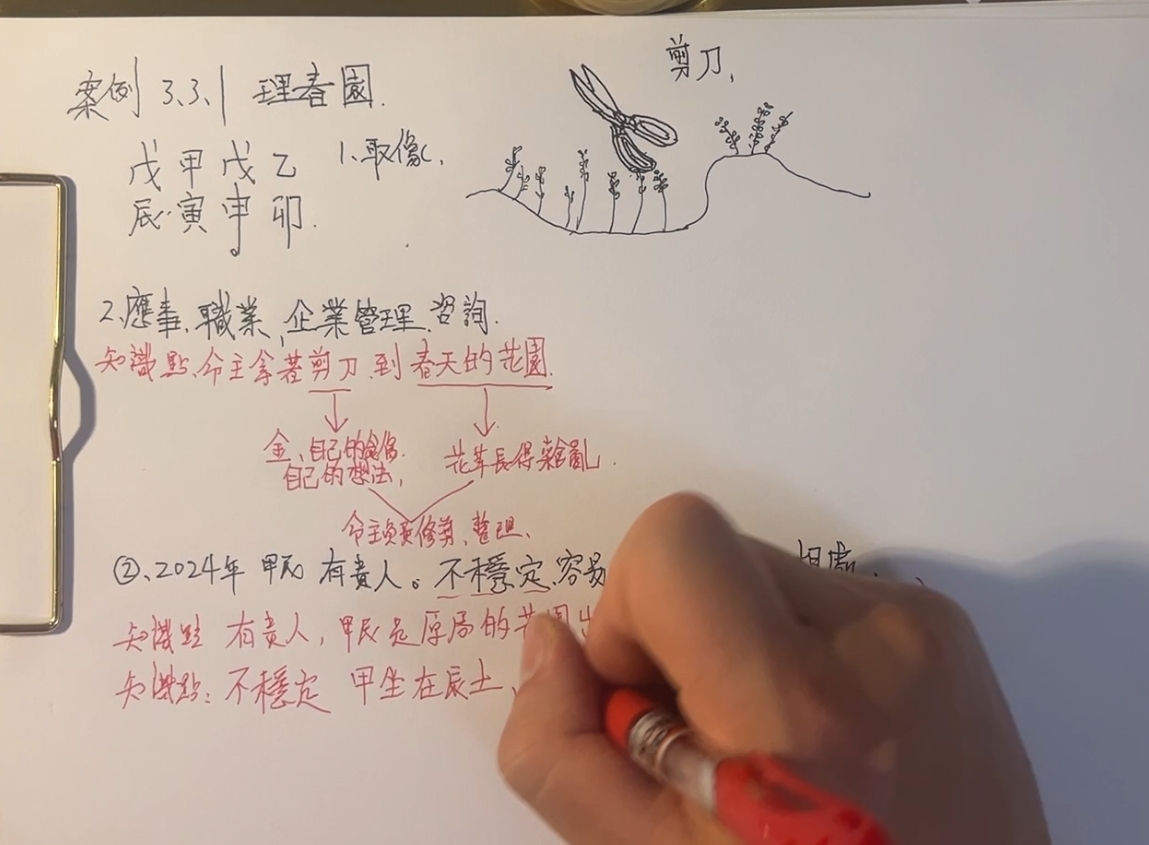 案例 3.3.1 理春園.
剪刀,
戊 甲 戊 乙
辰 寅 申 卯.
1.取像,
2.應事、職業、企業管理咨詢.
知識點、命主拿著剪刀到春天的花園.
金、自己的
自己的想法,
花草長得亂.
命主負責修剪、整理、
②、2024年 甲辰 有貴人。不穩定容易
知識點 有貴人, 甲辰是原局的花園出
知識點: 不穩定 甲坐在辰土、